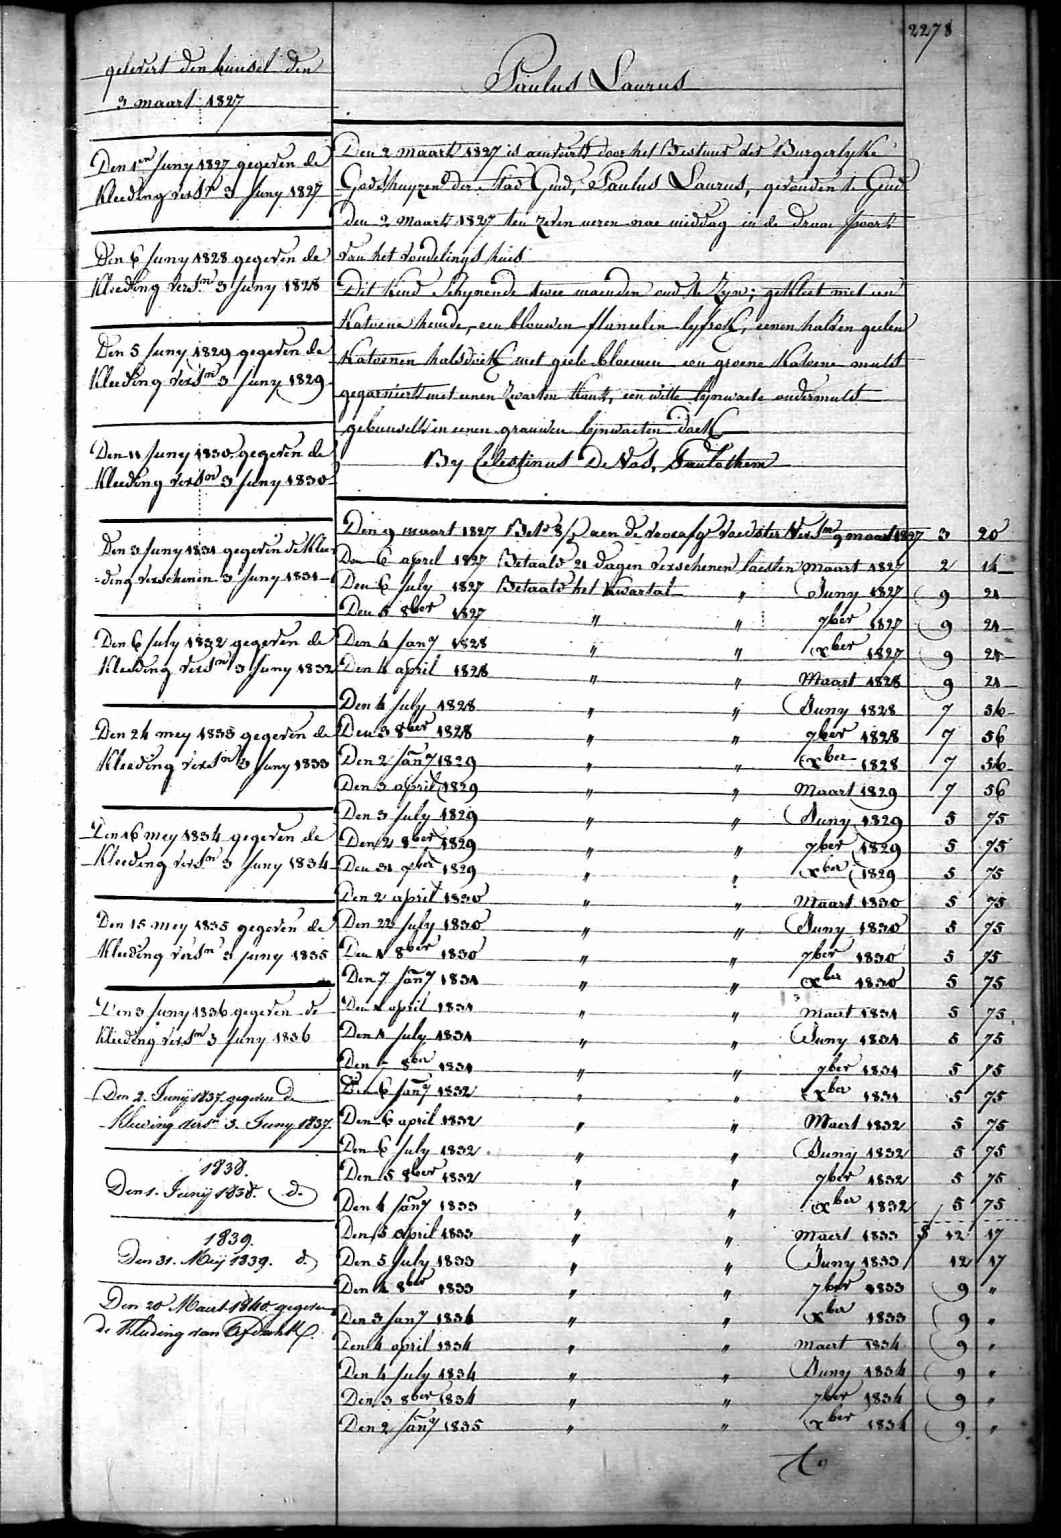 2278
gelevert den bunsel den
3 maart 1827
Den 1en Juny 1827 gegeven de
Kleeding versn 3 Juny 1827
Den 6 Juny 1828 gegeven de
Kleeding versn 3 Juny 1828
Den 5 Juny 1829 gegeven de
Kleeding versn 3 Juny 1829
Den 11 Juny 1830 gegeven de
Kleeding versn 3 Juny 1830
Den 3 Juny 1831 gegeven de Klee
=ding verschenen 3 Juny 1831
Den 6 July 1832 gegeven de
Kleeding versn 3 Juny 1832
Den 24 mey 1833 gegeven de
Kleeding versn 3 Juny 1833
Den 16 mey 1834 gegeven de
Kleeding versn 3 Juny 1834
Den 15 mey 1835 gegeven de
Kleeding versn 3 Juny 1835
Den 3 Juny 1836 gegeven de
Kleeding versn 3 Juny 1836
Den 2. Junij 1837 gegeven de
Kleeding versn 3. Juny 1837.
1838.
Den 1. Junij 1838. d.
1839.
Den 31. Meij 1839. d.
Den 20 Maert 1840 gegeven
de Kleeding van
Paulus Laurus
Den 2 maart 1827 is aenveird door het Bestuur der Burgerlyke
Godshuyzen der Stad Gend, Paulus Laurus, gevonden te Gend
den 2 Maart 1827 ten zeven ueren nae middag in de draai poort
van het vondelings huis
Dit kind schynende twee maenden oud te zyn; gekleet met een
Katoene hemde, een blouwen flanelen lyfrok, eenen halven geelen
Katoenen halsdoek met geele bloemen een groene Katoene muts
gegarniert met eenen zwarten kant, een witte lynwaete ondermuts
gebunselt in eenen grauwen lynwaeten doek
By Celestinus De Vos,
Den 9 maart 1827 Bet aen de voedster versn 9 maart 1827 3 20
Den 6 april 1827 Betaald 21 dagen verschenen laesten maart 1827 2 14
Den 6 July 1827 Betaald het Kwartal " Juny 1827 9 21
Den 5 8ber 1827 " " 7ber 1827 9 21
Den 4 Jany 1828 " " Xber 1827 9 21
Den 4 april 1828 " " Maart 1828 9 21
Den 4 July 1828 " " Juny 1828 7 56
Den 3 8ber 1828 " " 7ber 1828 7 56
Den 2 Jany 1829 " " Xber 1828 7 56
Den 3 april 1829 " " Maart 1829 7 56
Den 3 July 1829 " " Juny 1829 5 75
Den 2 8ber 1829 " " 7ber 1829 5 75
Den 31 Xber 1829 " " Xber 1829 5 75
Den 2 april 1830 " " Maart 1830 5 75
Den 22 July 1830 " " Juny 1830 5 75
Den 1 8ber 1830 " " 7ber 1830 5 75
Den 7 Jany 1831 " " Xber 1830 5 75
Den april 1831 " " Maert 1831 5 75
Den 1 July 1831 " " Juny 1831 5 75
Den 7 8ber 1831 " " 7ber 1831 5 75
Den 6 Jany 1832 " " Xber 1831 5 75
Den 6 april 1832 " " Maert 1832 5 75
Den 6 July 1832 " " Juny 1832 5 75
Den 5 8ber 1832 " " 7ber 1832 5 75
Den 4 Jany 1833 " " Xber 1832 5 75
Den 5 april 1833 " " Maert 1833 12 17
Den 5 July 1833 " " Juny 1833 12 17
Den 4 8ber 1833 " " 7ber 1833 9 "
Den 3 Jany 1834 " " Xber 1833 9 "
Den 4 april 1834 " " maert 1834 9 "
Den 4 July 1834 " " Juny 1834 9 "
Den 3 8ber 1834 " " 7ber 1834 9 "
Den 2 Jany 1835 " " Xber 1834 9 "